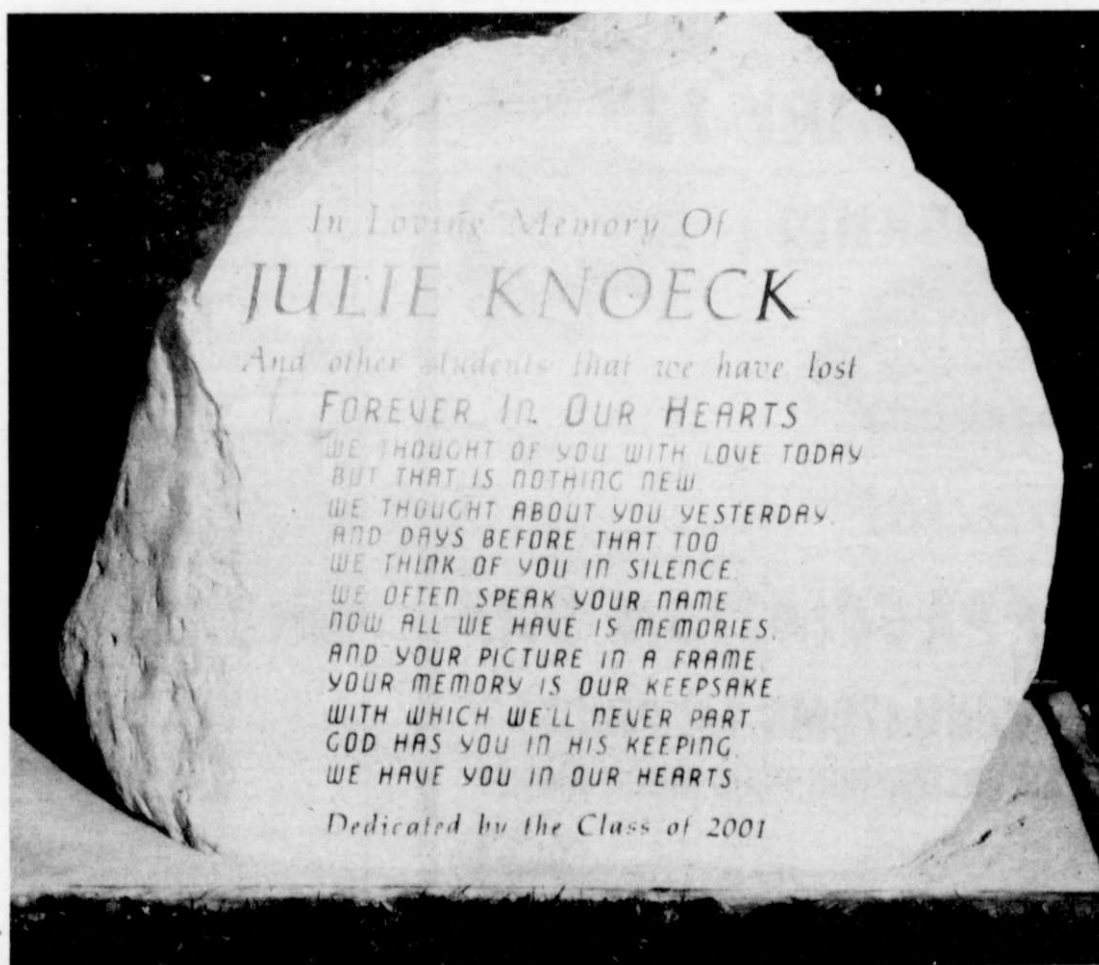 In Loving Memory Of
JULIE KNOECK
And other students that we have lost
FOREVER IN OUR HEARTS
WE THOUGHT OF YOU WITH LOVE TODAY
BUT THAT IS NOTHING NEW
WE THOUGHT ABOUT YOU YESTERDAY.
AND DAYS BEFORE THAT TOO
WE THINK OF YOU IN SILENCE.
WE OFTEN SPEAK YOUR NAME
NOW ALL WE HAVE IS MEMORIES,
AND YOUR PICTURE IN A FRAME.
YOUR MEMORY IS OUR KEEPSAKE
WITH WHICH WE'LL NEVER PART
GOD HAS YOU IN HIS KEEPING.
WE HAVE YOU IN OUR HEARTS
Dedicated by the Class of 2001